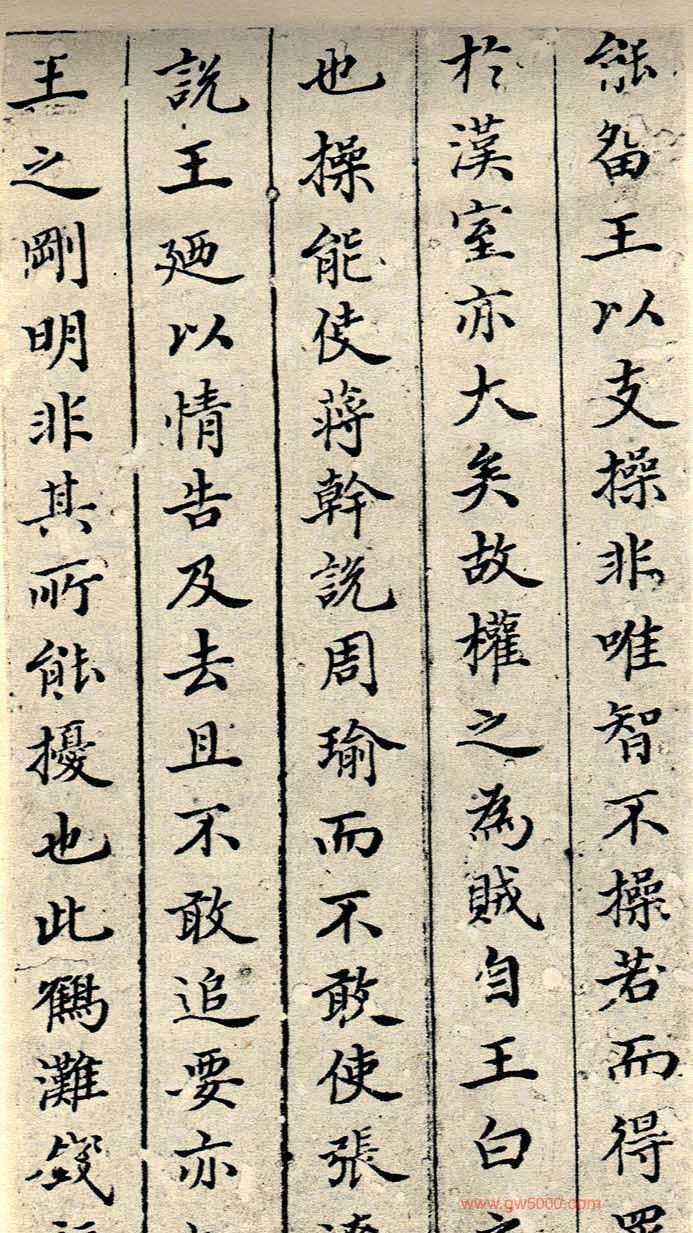 能留王以支操非唯智不操若而得罪
於漢室亦大矣故權之為賊自王白之
也操能使蔣幹説周瑜而不敢使張遼
説王廼以情告及去且不敢追要亦
王之剛明非其所能擾也此鶴灘錢
www.gw5000.com